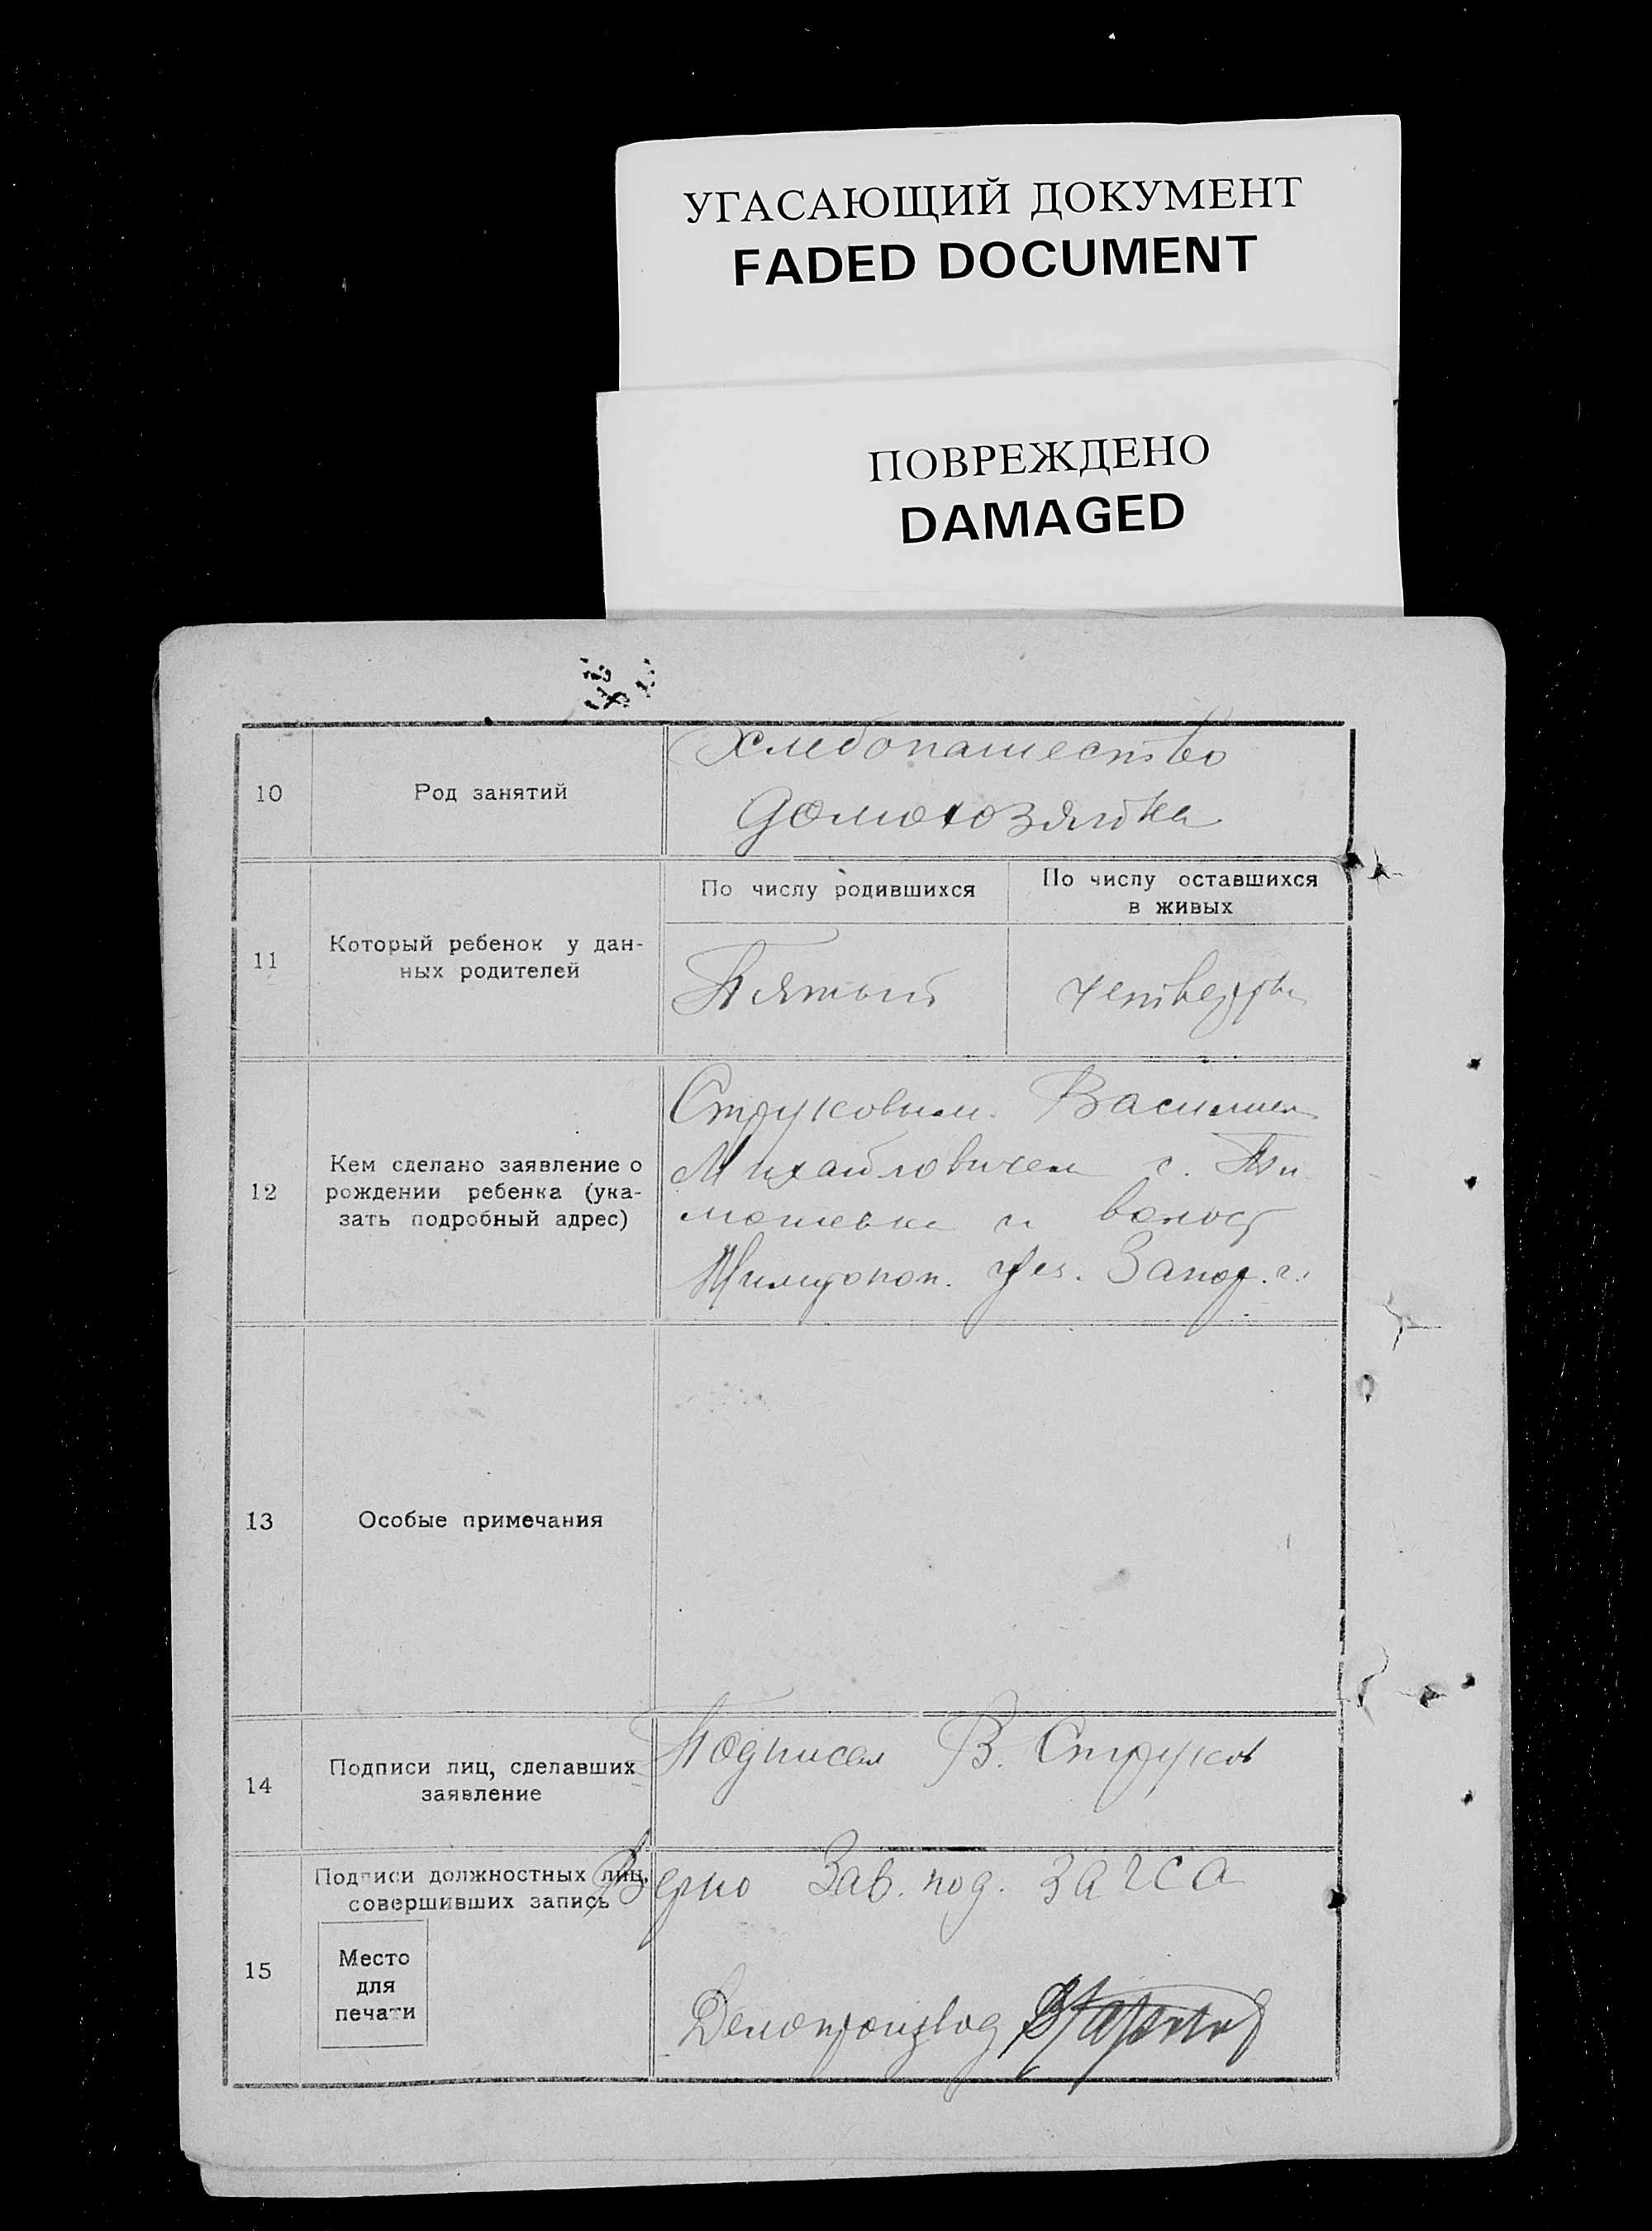 УГАСАЮЩИЙ ДОКУМЕНТ
FADED DOCUMENT
ПОВРЕЖДЕНО
DAMAGED
10
Род занятий
Хлебопашество
Домохозяйка
11
Который ребенок у дан-
ных родителей
По числу родившихся
Пятый
По числу оставшихся
в живых
четверты
12
Кем сделано заявление о
рождении ребенка (ука-
зать подробный адрес)
Струковым Василием
Михайловичем с. Ти-
мошевка и волост
уез. Запор. г.
13
Особые примечания
14
Подписи лиц, сделавших
заявление
Подписал В. Струков
15
Подписи должностных лиц,
совершивших запись
Место
для
печати
Верно Зав. под. загса
Делопроизвод